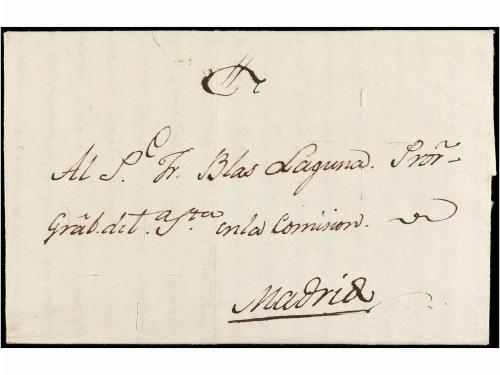 Al P.e Fr. Blas Laguna. Pror.
Gràb. de t.a S.ta en la Comision. de
Madrid